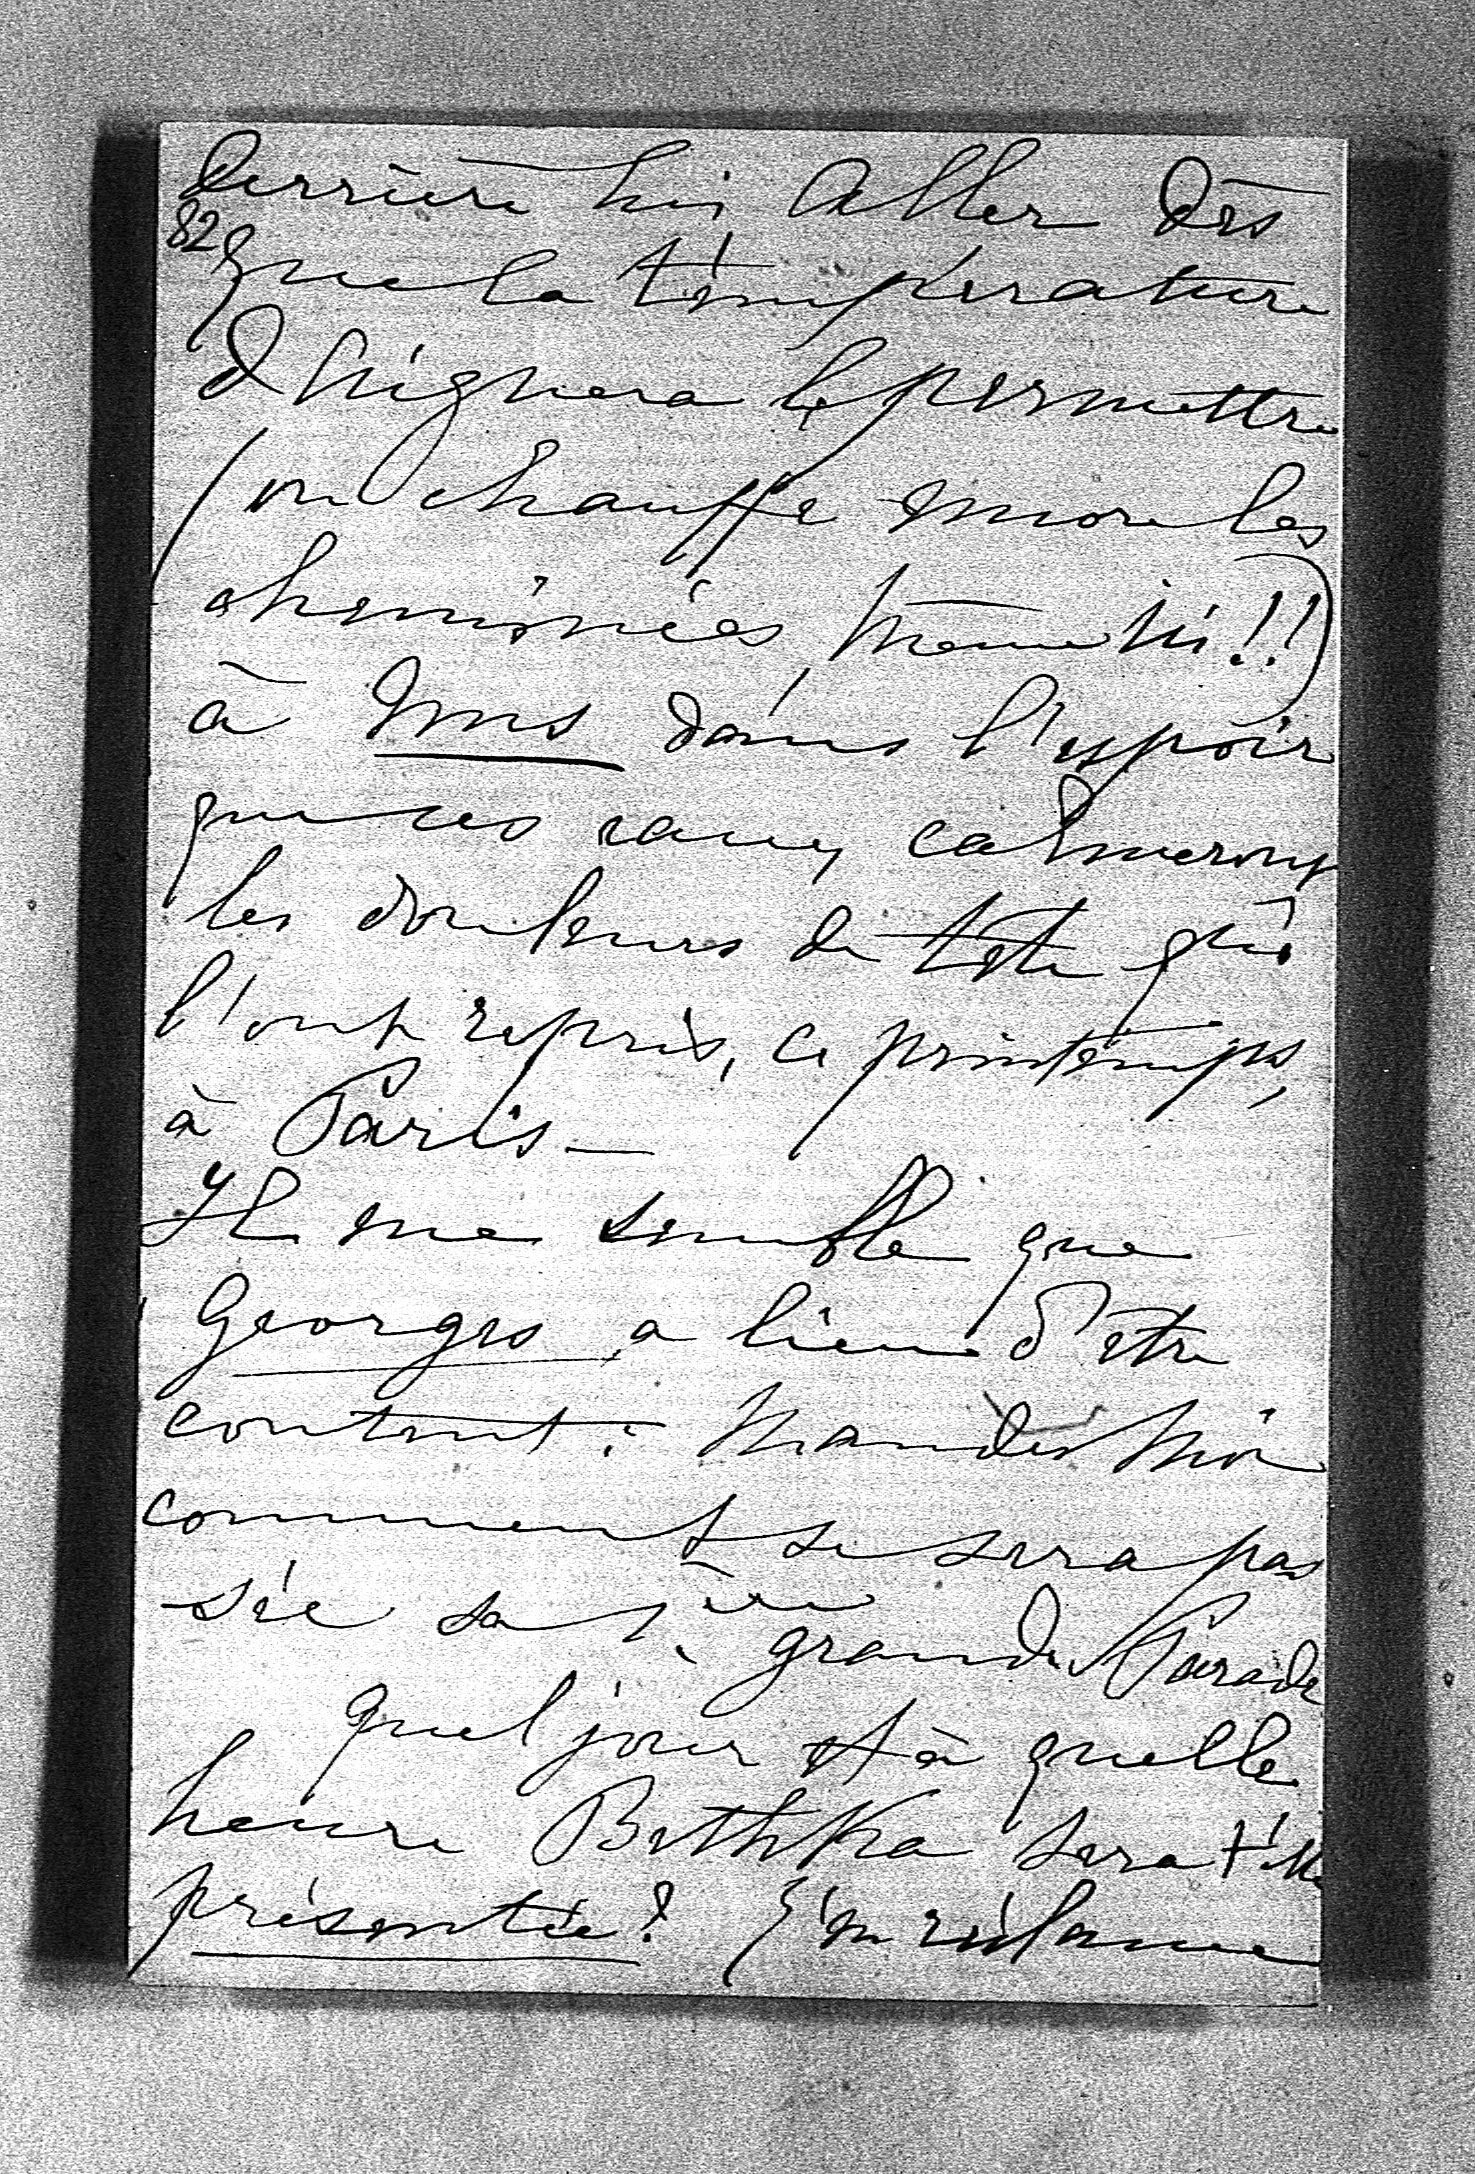 derrière lui aller dès
82
que la température
daignera le permettre
(on chauffe encore les
cheminées, même ici!!)
à Ems dans l'espoir
que ces eaux calmeront
les douleurs de tête qui
l'ont repris, ce printemps,
à Paris —
Il me semble que
Georges a lieu d'être
content: Mandes moi
comment se sera pas
sée sa 1ère grande Parade
quel jour et à quelle
heure Bethka sera t'elle
présentée? J'en réclame